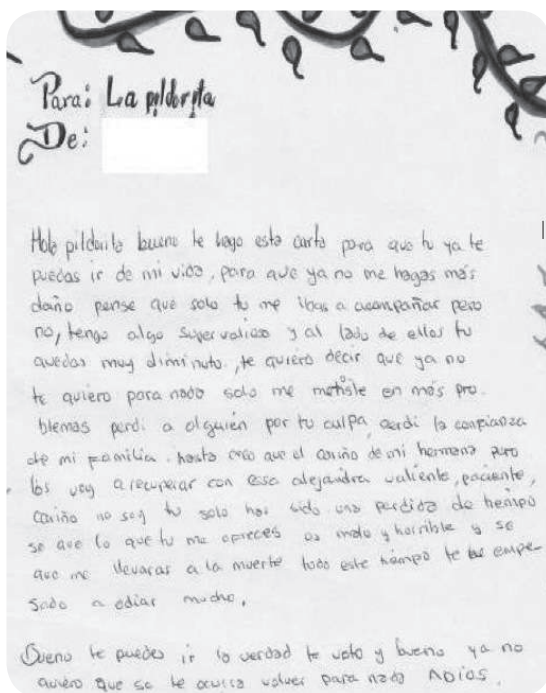 Para: La pildorita
De:
Hola pildorita bueno te hago esta carta para que tu ya te
puedas ir de mi vida, para que ya no me hagas más
daño pense que solo tu me ibas a acompañar pero
no, tengo algo super valioso y al lado de ellos tu
quedas muy diminuto, te quiero decir que ya no
te quiero para nada solo me metiste en más pro.
blemas perdi a alguien por tu culpa, perdi la confianza
de mi familia. hasta creo que el cariño de mi hermana pero
los voy a recuperar con esa alejandra valiente, paciente,
cariño no soy tu solo has sido una perdida de tiempo
se que lo que tu me ofreces es malo y horrible y se
que me llevaras a la muerte todo este tiempo te he empe-
sado a odiar mucho.
Bueno te puedes ir la verdad te voto y bueno ya no
quiero que se te ocurra volver para nada ADIOS.